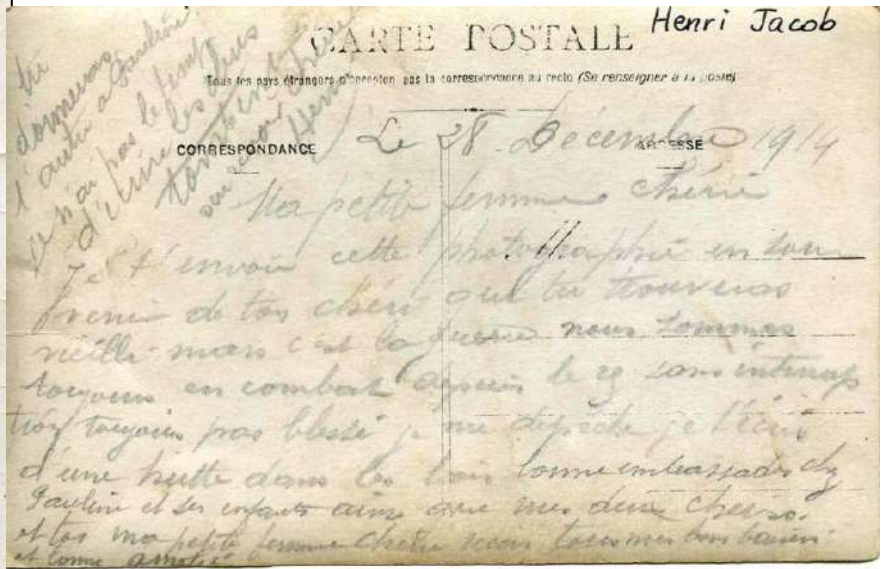 Henri Jacob
CARTE POSTALE
Tous les pays étrangers n'acceptent pas la correspondance au recto (Se renseigner à la poste)
CORRESPONDANCE
ADRESSE
Le 28 Décembre 1914
Ma petite femme chérie
Je t'envoie cette photographie en sou
venir de ton chéri que tu trouveras
vieilli mais c'est la guerre nous sommes
toujours en combat depuis le 29 sans interrup
tion toujours pas blessé je me dépêche je t'écris
d'une hutte dans les bois bonne embrassades chez
Pauline et ses enfants ainsi que mes deux chers
et toi ma petite femme chérie reçois tous mes bons baisers
et bonne amitié
tu
donneras
l'autre a Pauline
je n'ai pas le temps
d'écrire les deux
ton
Henri